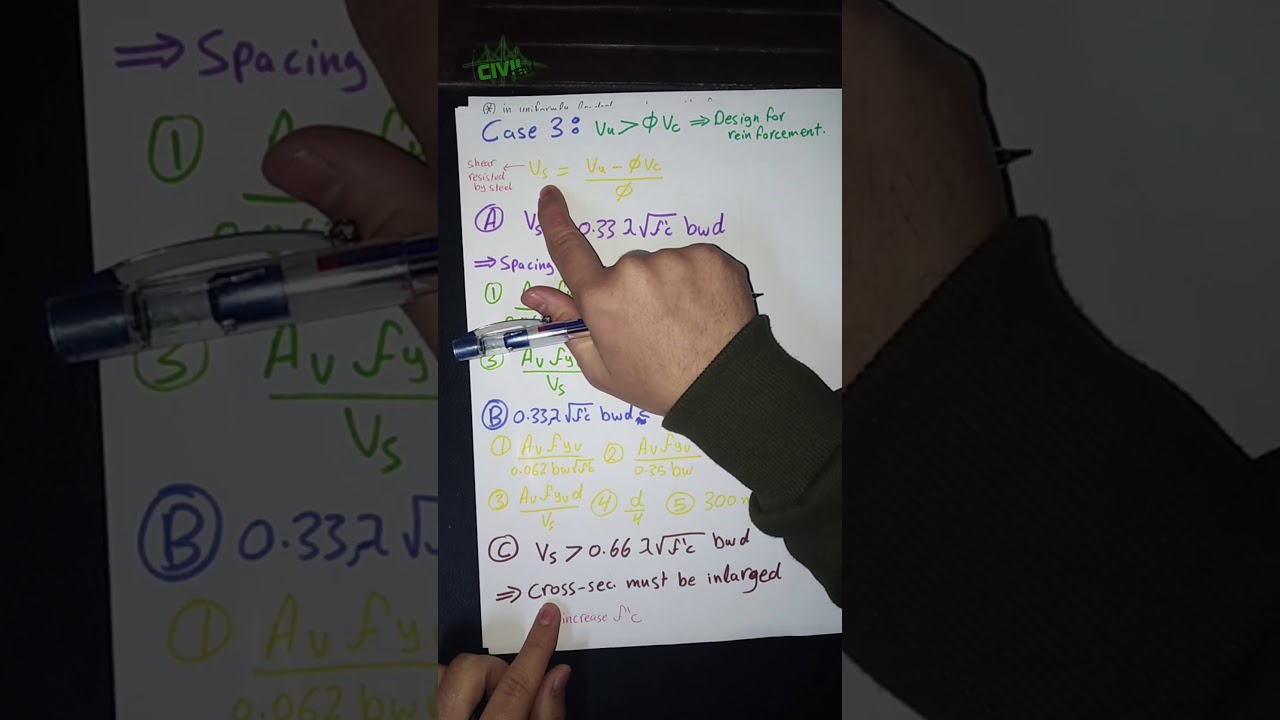 CIVIL
(*) in uniformly loaded
Case 3: Vu > ØVc ⇒ Design for
reinforcement.
shear
resisted
by steel
← Vs = (Vu − ØVc) / Ø
(A) Vs 0.33 λ√f'c bwd
⇒ Spacing
①
③ Av fy / Vs
(B) 0.33 λ√f'c bwd ≤
① Av fyv / 0.062 bw√f'c ② Av fyv / 0.35 bw
③ Av fyv d / Vs ④ d/4 ⑤ 300
(C) Vs > 0.66 λ√f'c bwd
⇒ cross-sec. must be inlarged
increase f'c
⇒ Spacing
①
③ Av fy / Vs
(B) 0.33 λ
① Av fy / 0.062 bw